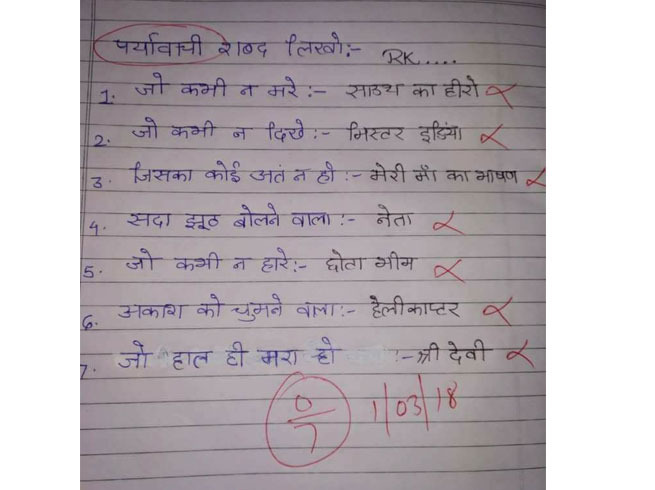 पर्यावाची शब्द लिखो:-
RK....
1. जो कभी न मरे:- साउथ का हीरो
2. जो कभी न दिखे:- मिस्टर इंडिया
3. जिसका कोई अतं न हो:- मेरी माँ का भाषण
4. सदा झूठ बोलने वाला:- नेता
5. जो कभी न हारे:- छोटा भीम
6. अकाश को चुमने वाला:- हेलीकाप्टर
7. जो हाल ही मरा हो :- श्री देवी
0/7 1/03/18